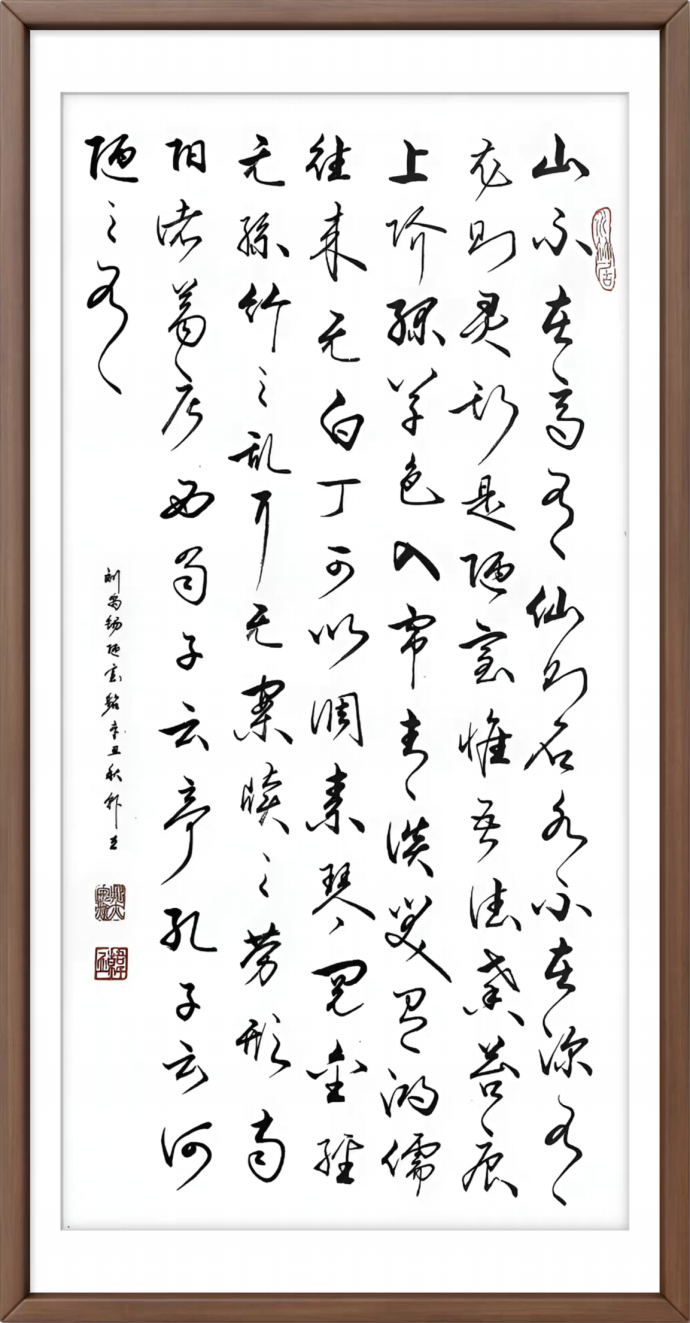 山不在高有仙则名水不在深有
龙则灵斯是陋室惟吾德馨苔痕
上阶绿草色入帘青谈笑有鸿儒
往来无白丁可以调素琴阅金经
无丝竹之乱耳无案牍之劳形南
阳诸葛庐西蜀子云亭孔子云何
陋之有
刘禹锡陋室铭辛丑秋